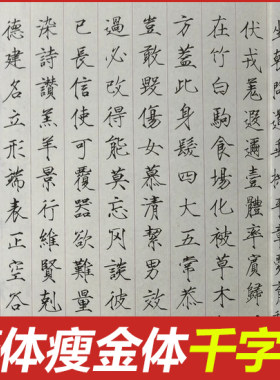 伏戎羌遐邇壹體率賓歸
在竹白駒食場化被草木
方蓋此身髮四大五常恭
豈敢毀傷女慕清絜男效
過必改得能莫忘罔談彼
已長信使可覆器欲難量
染詩讚羔羊景行維賢剋
德建名立形端表正空谷
体瘦金体千字